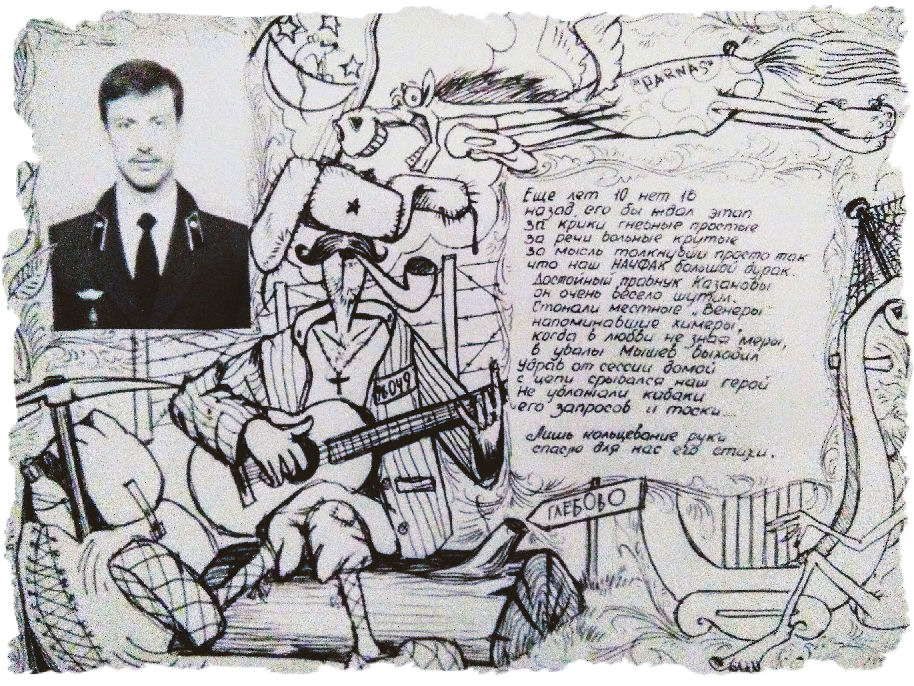 "PARNAS"
Еще лет 10 нет 16
назад его бы ждал этап
за крики гневные простые
за речи вольные крутые
за мысль толкнувши просто так
что наш НАЧФАК большой дурак.
Достойный правнук Казановы
он очень весело шутил.
Стонали местные „Венеры
напоминавшие химеры,
когда в любви не зная меры,
в увалы Мышев выходил
Удрав от сессии домой
с цепи срывался наш герой
Не ублажали кабаки
его запросов и тоски...
Лишь кольцевание руки
спасло для нас его стихи.
ГЛЕБОВО